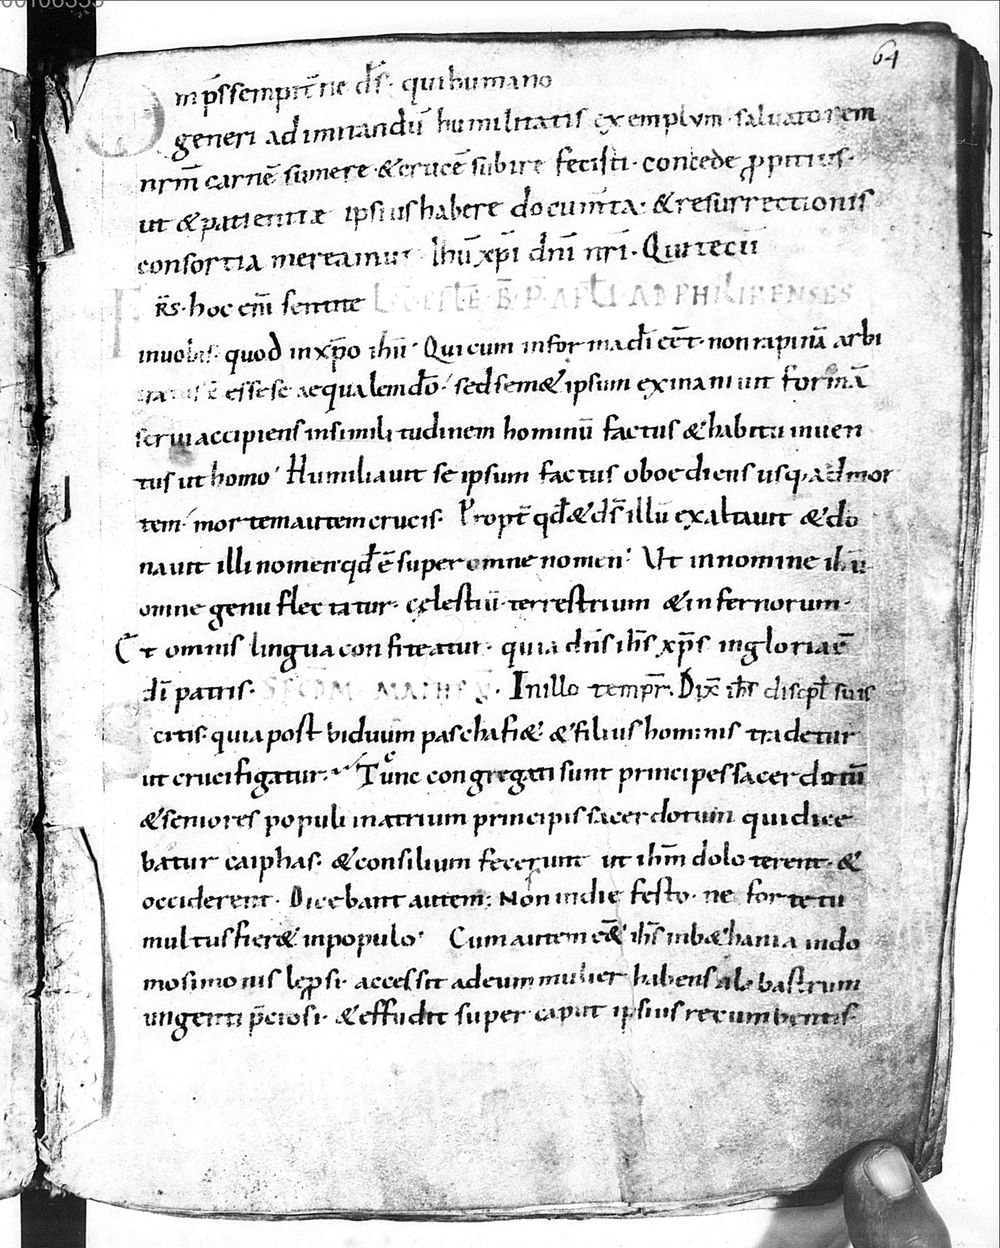 64
Omp̄s sempit̄ne d̄s · qui humano
generi ad imitandū humilitatis exemplum · saluatorem
nrm̄ carnē sumere · & crucē subire fecisti · concede ꝓpitius ·
ut & patientiæ ipsius habere docum̄ta · & resurrectionis
consortia mereamur · ihū xp̄i dn̄i nr̄i · Qui tecū
Frs̄ · hoc eni̅ sentite AD PHILIPENSES
in uobis quod in xp̄o ihū · Qui cum in forma di̅ eēt · non rapinā arbi
esse se aequalem dō · sed sem& ipsum exinaniuit formā
serui accipiens in similitudinem hominū factus & habitu inuen
tus ut homo · Humiliauit se ipsum factus oboediens usq, ad mor
tem · mortem autem crucis · Propt̄ qđ & d̄s illū exaltauit & do
nauit illi nomen qđ ē super omne nomen · Ut in nomine ihū
omne genu flectatur · cęlestiū · terrestrium & infernorum ·
Et omnis lingua confiteatur · quia dn̄s ih̄s xp̄s in gloria ē
di̅ patris · SECDM MATHEV̄ · In illo tempr̄ · Dix̄ ih̄s discipl̄ suis
Scitis quia post biduum pascha fi& · & filius hominis tradetur
ut crucifigatur · Tunc congregati sunt principes sacerdotū
& seniores populi in atrium principis sacerdotum qui dice
batur caiphas · & consilium fecerunt ut ihm̄ dolo tenerent · &
occiderent · Dicebant autem : Non in die festo · ne forte tu
multus fier& in populo · Cum autem eē& ih̄s in b&hania in do
mo simonis lęprosi · accessit ad eum mulier habens alabastrum
ungenti p̄ciosi · & effudit super caput ipsius recumbentis ·